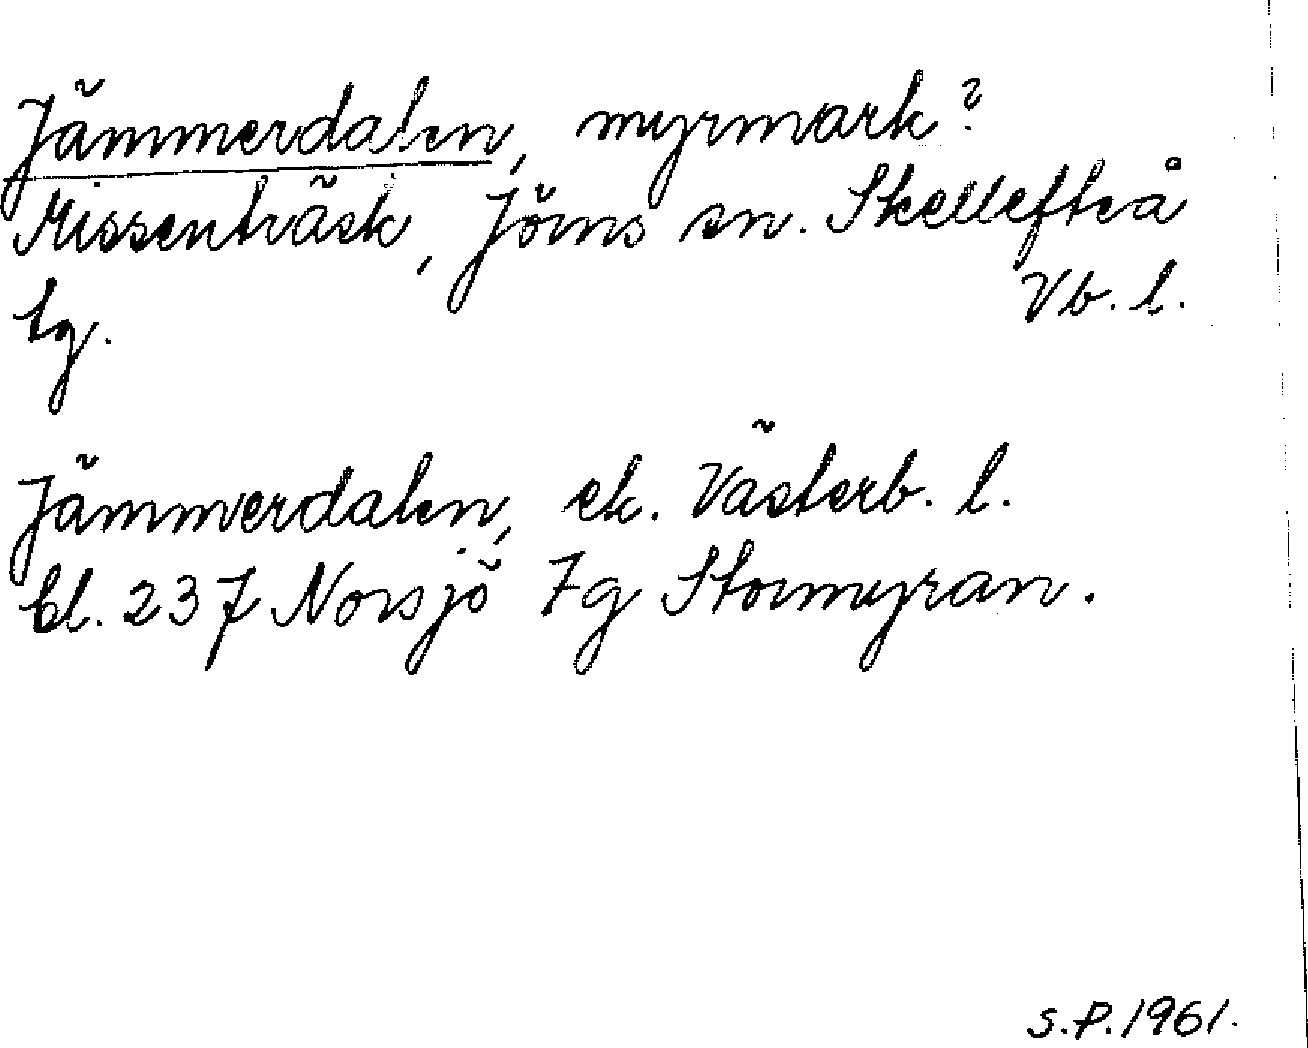 Jämmerdalen, myrmark?
Missenträsk, Jörns sn. Skellefteå
tg. Vb. l.
Jämmerdalen, ek. Västerb. l.
bl. 237 Norsjö 7g Stormyran.
S.P. 1961.